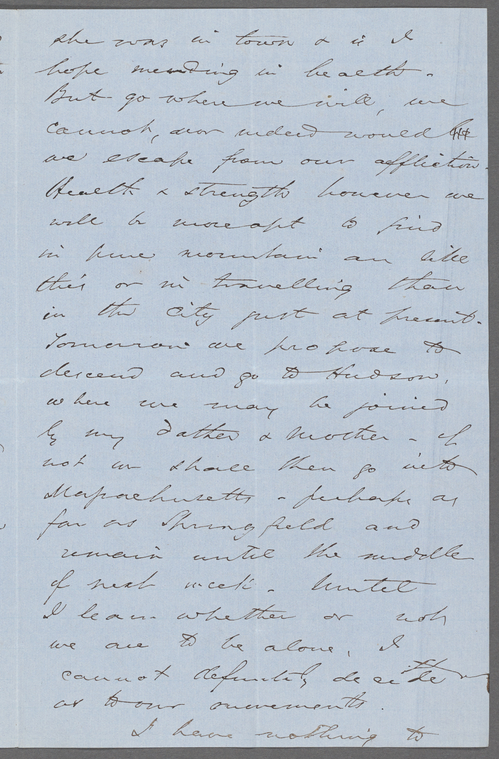 she was in town & is I
hope mending in health -
But go where we will, we
cannot, nor indeed would
we escape from our affliction.
Health & strength however we
will be more apt to find
in pure mountain air like
this or in travelling than
in the City just at present.
Tomorrow we propose to
descend and go to Hudson,
where we may be joined
by my Father & Mother - if
not we shall then go into
Massachusetts - perhaps as
far as Springfield and
remain until the middle
of next week. Until
I learn whether or not
we are to be alone, I
cannot definitely decide
as to our movements.
I have nothing to